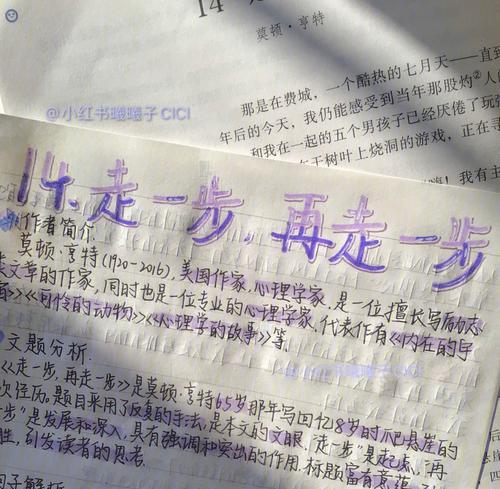 14
莫顿·亨特
那是在费城，一个酷热的七月天——直到
年后的今天，我仍能感受到当年那股灼②人
和我在一起的五个男孩子已经厌倦了玩弹
在干树叶上烧洞的游戏，正在寻
嗨！我有主
@小红书曦曦子CICI
14.走一步，再走一步
作者简介
莫顿·亨特(1920-2016)，美国作家，心理学家，是一位擅长写励志
类文章的作家，同时也是一位专业的心理学家，代表作有《内在的宇
宙》《可怜的动物》《心理学的故事》等
文题分析
《走一步，再走一步》是莫顿·亨特65岁那年写回忆8岁时爬悬崖的
次经历。题目采用了反复的手法，是本文的文眼，"走一步"是起点，"再
步"是发展和深入，具有强调和突出的作用，标题富有意
胜，引发读者的思考
词解析